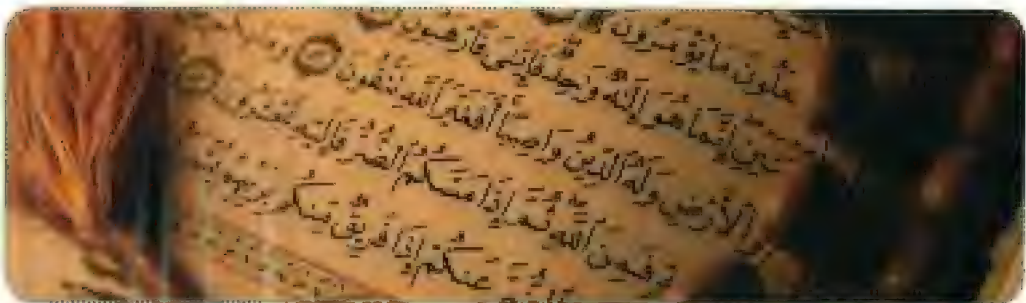 عَلُونَ مَا يُؤْمَرُونَ
ثْنَيْنِ إِنَّمَا هُوَ إِلَٰهٌ وَٰحِدٌ فَإِيَّٰىَ فَٱرْهَبُونِ
وَٱلْأَرْضِ وَلَهُ ٱلدِّينُ وَاصِبًا أَفَغَيْرَ ٱللَّهِ تَتَّقُونَ
فَمِنَ ٱللَّهِ ثُمَّ إِذَا مَسَّكُمُ ٱلضُّرُّ فَإِلَيْهِ تَجْـَٔرُونَ
عَنكُمْ إِذَا فَرِيقٌ مِّنكُم بِرَبِّهِمْ